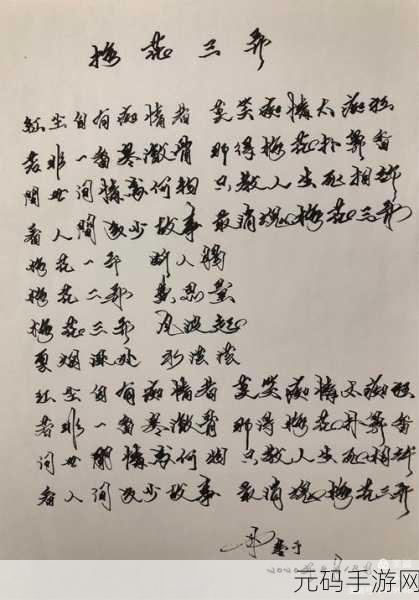 梅花三弄
红尘自有痴情者 莫笑痴情太痴狂
若非一番寒澈骨 那得梅花扑鼻香
问世间情为何物 只教人生死相许
看人间多少故事 最消魂梅花三弄
梅花一弄 断人肠
梅花二弄 费思量
梅花三弄 风波起
云烟深处 水茫茫
红尘自有痴情者 莫笑痴情太痴狂
若非一番寒澈骨 那得梅花扑鼻香
问世间情为何物 只教人生死相许
看人间多少故事 最消魂梅花三弄
元码手游网